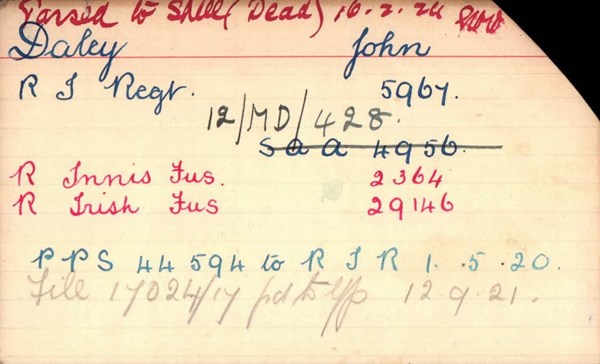 Passed to S (Dead) 16.2.24
Daley John
R I Regt. 5967.
12/MD/428.
S a A 4956.
R Innis Fus. 2364
R Irish Fus 29146
PPS 44594 to R I R 1.5.20.
File 17024/17 pd to 12.9.21.